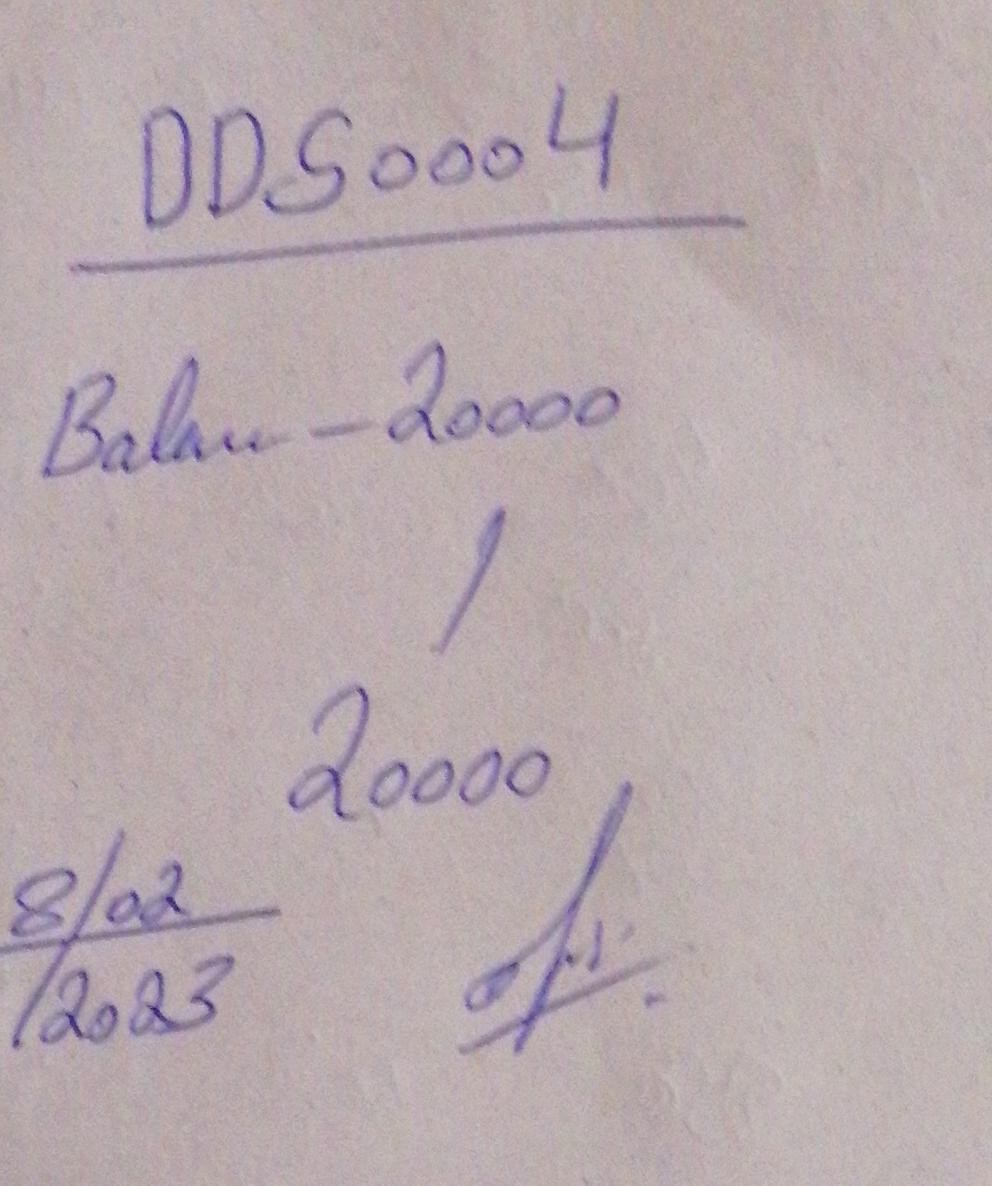 DDS0004
Balan - 20000
/
20000
8/02
/2023